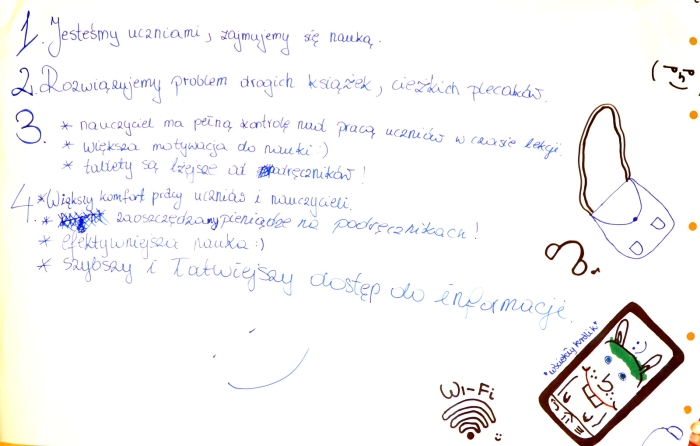 1. Jesteśmy uczniami, zajmujemy się nauką.
2. Rozwiązujemy problem drogich książek, cieżkich plecaków.
3. * nauczyciel ma pełną kontrolę nad pracą uczniów w czasie lekcji.
* większa motywacja do nauki :)
* tablety są lżejsze od podręczników!
4. * Większy komfort pracy uczniów i nauczycieli.
* zaoszczędzamy pieniądze na podręcznikach!
* efektywniejsza nauka :)
* szybszy i łatwiejszy dostęp do informacji.
Wi-Fi
*wściekły królik*